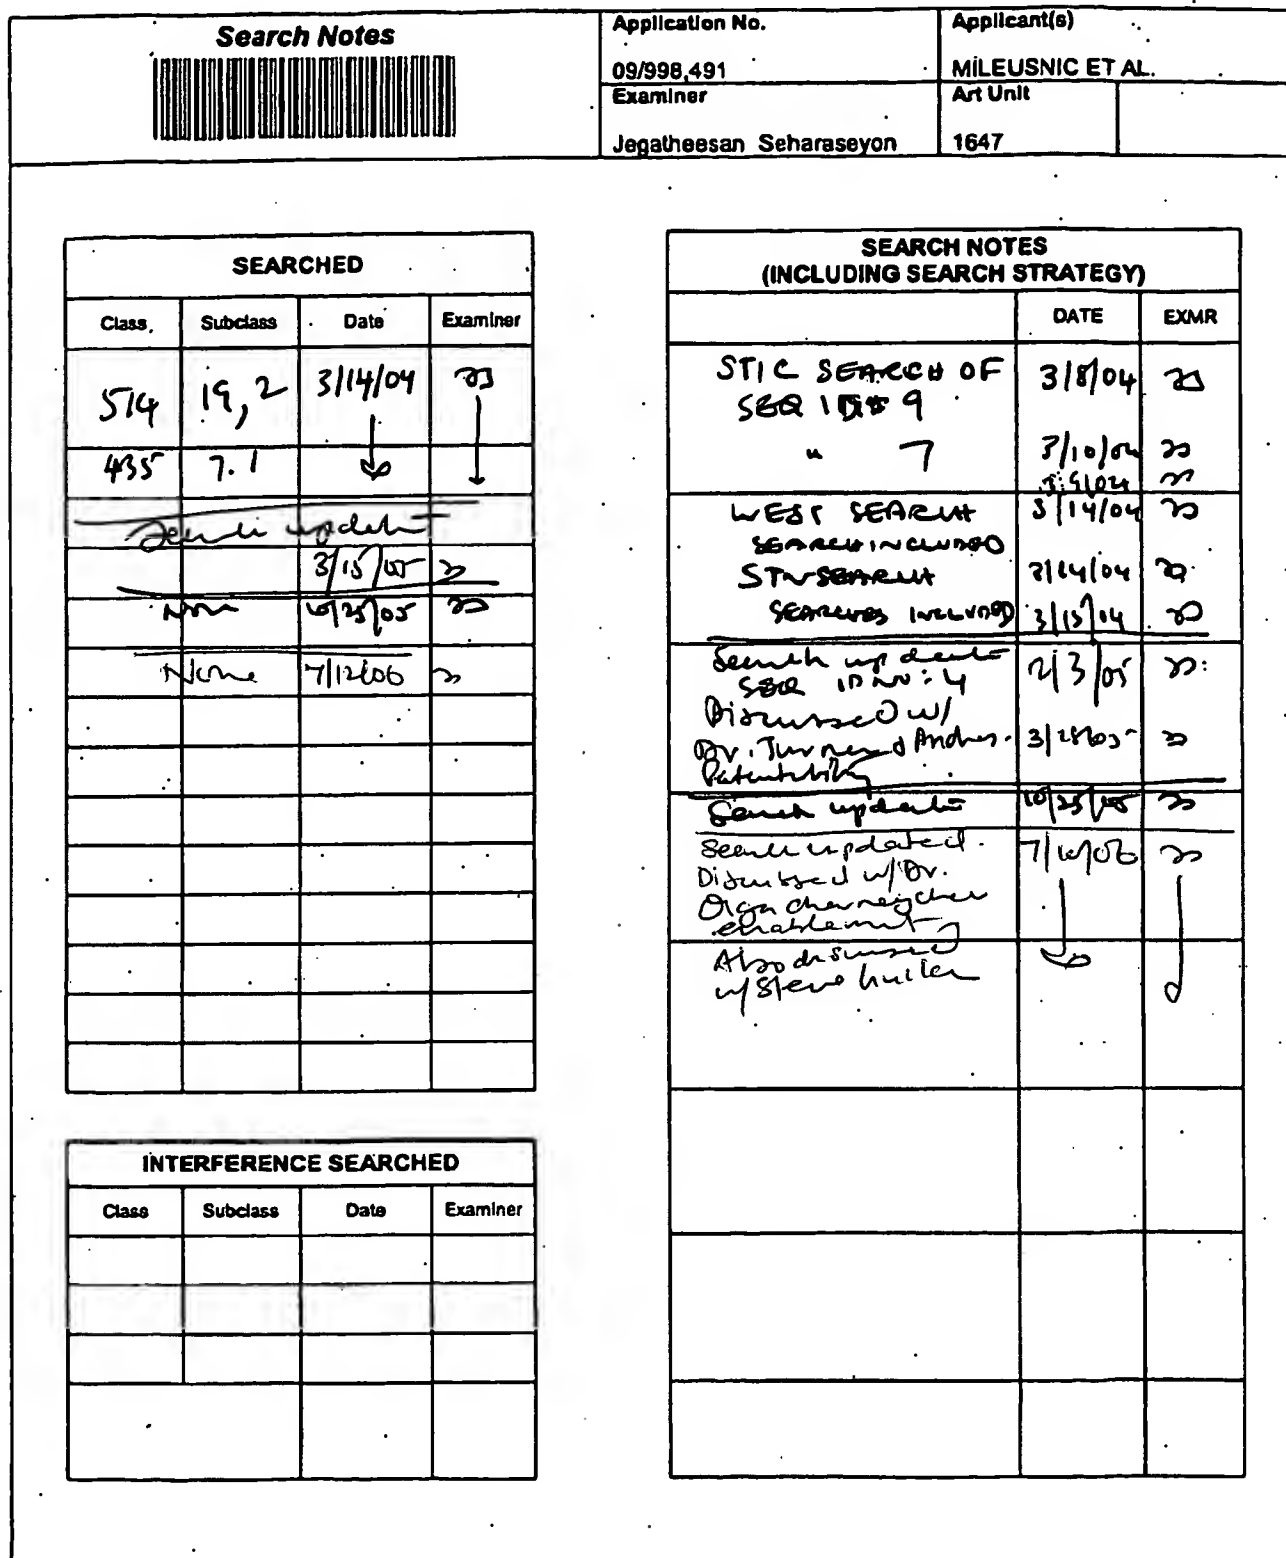 Search Notes
Application No.
09/998,491
Applicant(s)
MILEUSNIC ET AL.
Examiner
Jegatheesan Seharaseyon
Art Unit
1647
SEARCHED
Class Subclass Date Examiner
514 19, 2 3/14/04
435 7.1
Search update
3/15/05
None 10/25/05
None 7/12/06
INTERFERENCE SEARCHED
Class Subclass Date Examiner
SEARCH NOTES
(INCLUDING SEARCH STRATEGY)
DATE EXMR
STIC SEARCH OF 3/8/04
SEQ ID# 9
" 7 3/10/04
WEST SEARCH 3/14/04
SEARCH INCLUDED
STN SEARCH 3/14/04
SEARCHES INCLUDED 3/15/04
Search update 2/3/05
SEQ ID NO: 4
Discussed w/
Dr. Turner & Andres. 3/28/05
Patentability
Search update 10/25/05
Search updated. 7/10/06
Discussed w/Dr.
Olga
enablement
Also discussed
w/Steve